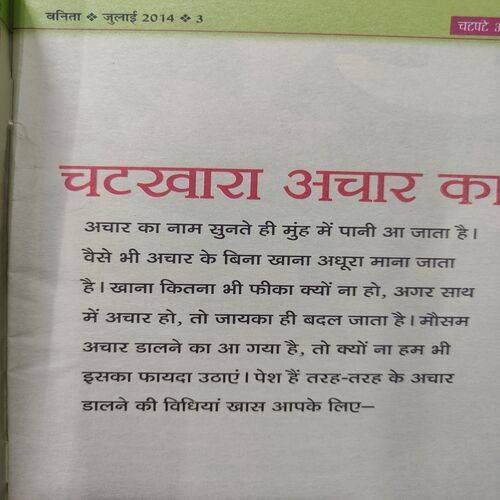 वनिता ❖ जुलाई 2014 ❖ 3
चटपटे
चटखारा अचार का
अचार का नाम सुनते ही मुंह में पानी आ जाता है।
वैसे भी अचार के बिना खाना अधूरा माना जाता
है। खाना कितना भी फीका क्यों ना हो, अगर साथ
में अचार हो, तो जायका ही बदल जाता है। मौसम
अचार डालने का आ गया है, तो क्यों ना हम भी
इसका फायदा उठाएं। पेश हैं तरह-तरह के अचार
डालने की विधियां खास आपके लिए—